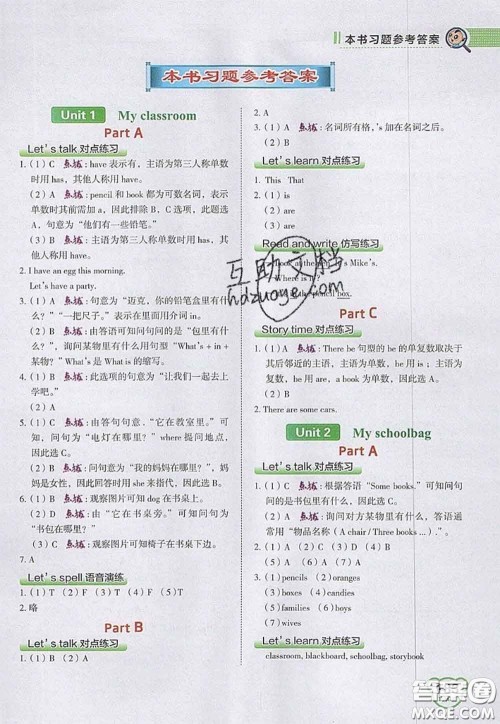 本书习题参考答案
本书习题参考答案
Unit 1 My classroom
Part A
Let's talk 对点练习
1. (1) C 点拨: have 表示有，主语为第三人称单数
时用 has，其他人称用 have。
(2) A 点拨: pencil 和 book 为可数名词，表示
有时其前需加 an，因此排除 B、C 选项，此题选
A，句意为“他们有一些铅笔。”
(3) B 点拨: 主语为第三人称单数时用 has，其
他人称用 have。
2. I have an egg this morning.
Let's have a party.
3. (1) A
4. (1) A 点拨: 句意为“迈克，你的铅笔盒里有什
么？”“一把尺子。”表示在里面用介词 in。
(2) B 点拨: 由答语可知问句问的是“包里有什
么？”，询问某物里有什么用句型“What's + in +
某物？”What's 是 What is 的缩写。
(3) A 点拨: 此选项的句意为“让我们一起去上
学吧。”
(2) A
5. (1) C 点拨: 由答句句意，“它在教室里。”可
知，问句为“电灯在哪里？”where 提问地点，
因此选 C。
(2) B 点拨: 句意为“我的妈妈在哪里？”，妈
妈是女性，因此回答时用 she 来指代，因此选 B。
6. (1) B 点拨: 观察图片可知 dog 在书桌上。
(2) A 点拨: 由“它在书桌旁。”可知问句为“它
在哪里？”
(3) C 点拨: 观察图片可知椅子在书桌与床之间。
7. A
Let's spell 语音演练
1. (1) T (2) F (3) T (4) T (5) F
2. 略
Part B
Let's talk 对点练习
1. (1) B (2) A
2. A
3. (1) A 点拨: 名词所有格，'s 加在名词之后。
(2) B
Let's learn 对点练习
1. This That
2. (1) is
(2) are
(3) are
Read and write 仿写练习
Mike's.
pencil box.
Part C
Story time 对点练习
1. (1) A 点拨: There be 句型中 be 的单复数取决于
其后邻近的主语，主语为单数，be 用 is；主语为
复数，be 用 are，因此选 A。
(2) A
2. There are some cars.
Unit 2 My schoolbag
Part A
Let's talk 对点练习
1. (1) A 点拨: 根据答语“Some books.”可知问句
问的是书包里有什么，因此选 A。
(2) A 点拨: 询问对方某物里有什么，答语通
常用“物品名称（A chair / Three books ...）.”
2. (1) C (2) B (3) A
3. (1) pencils (2) oranges
(3) boxes (4) books
(5) families (6) boys
(7) wives
Let's learn 对点练习
classroom, blackboard, schoolbag, storybook
互助文档
hdzuoye.com
答案圈
MXQE.COM